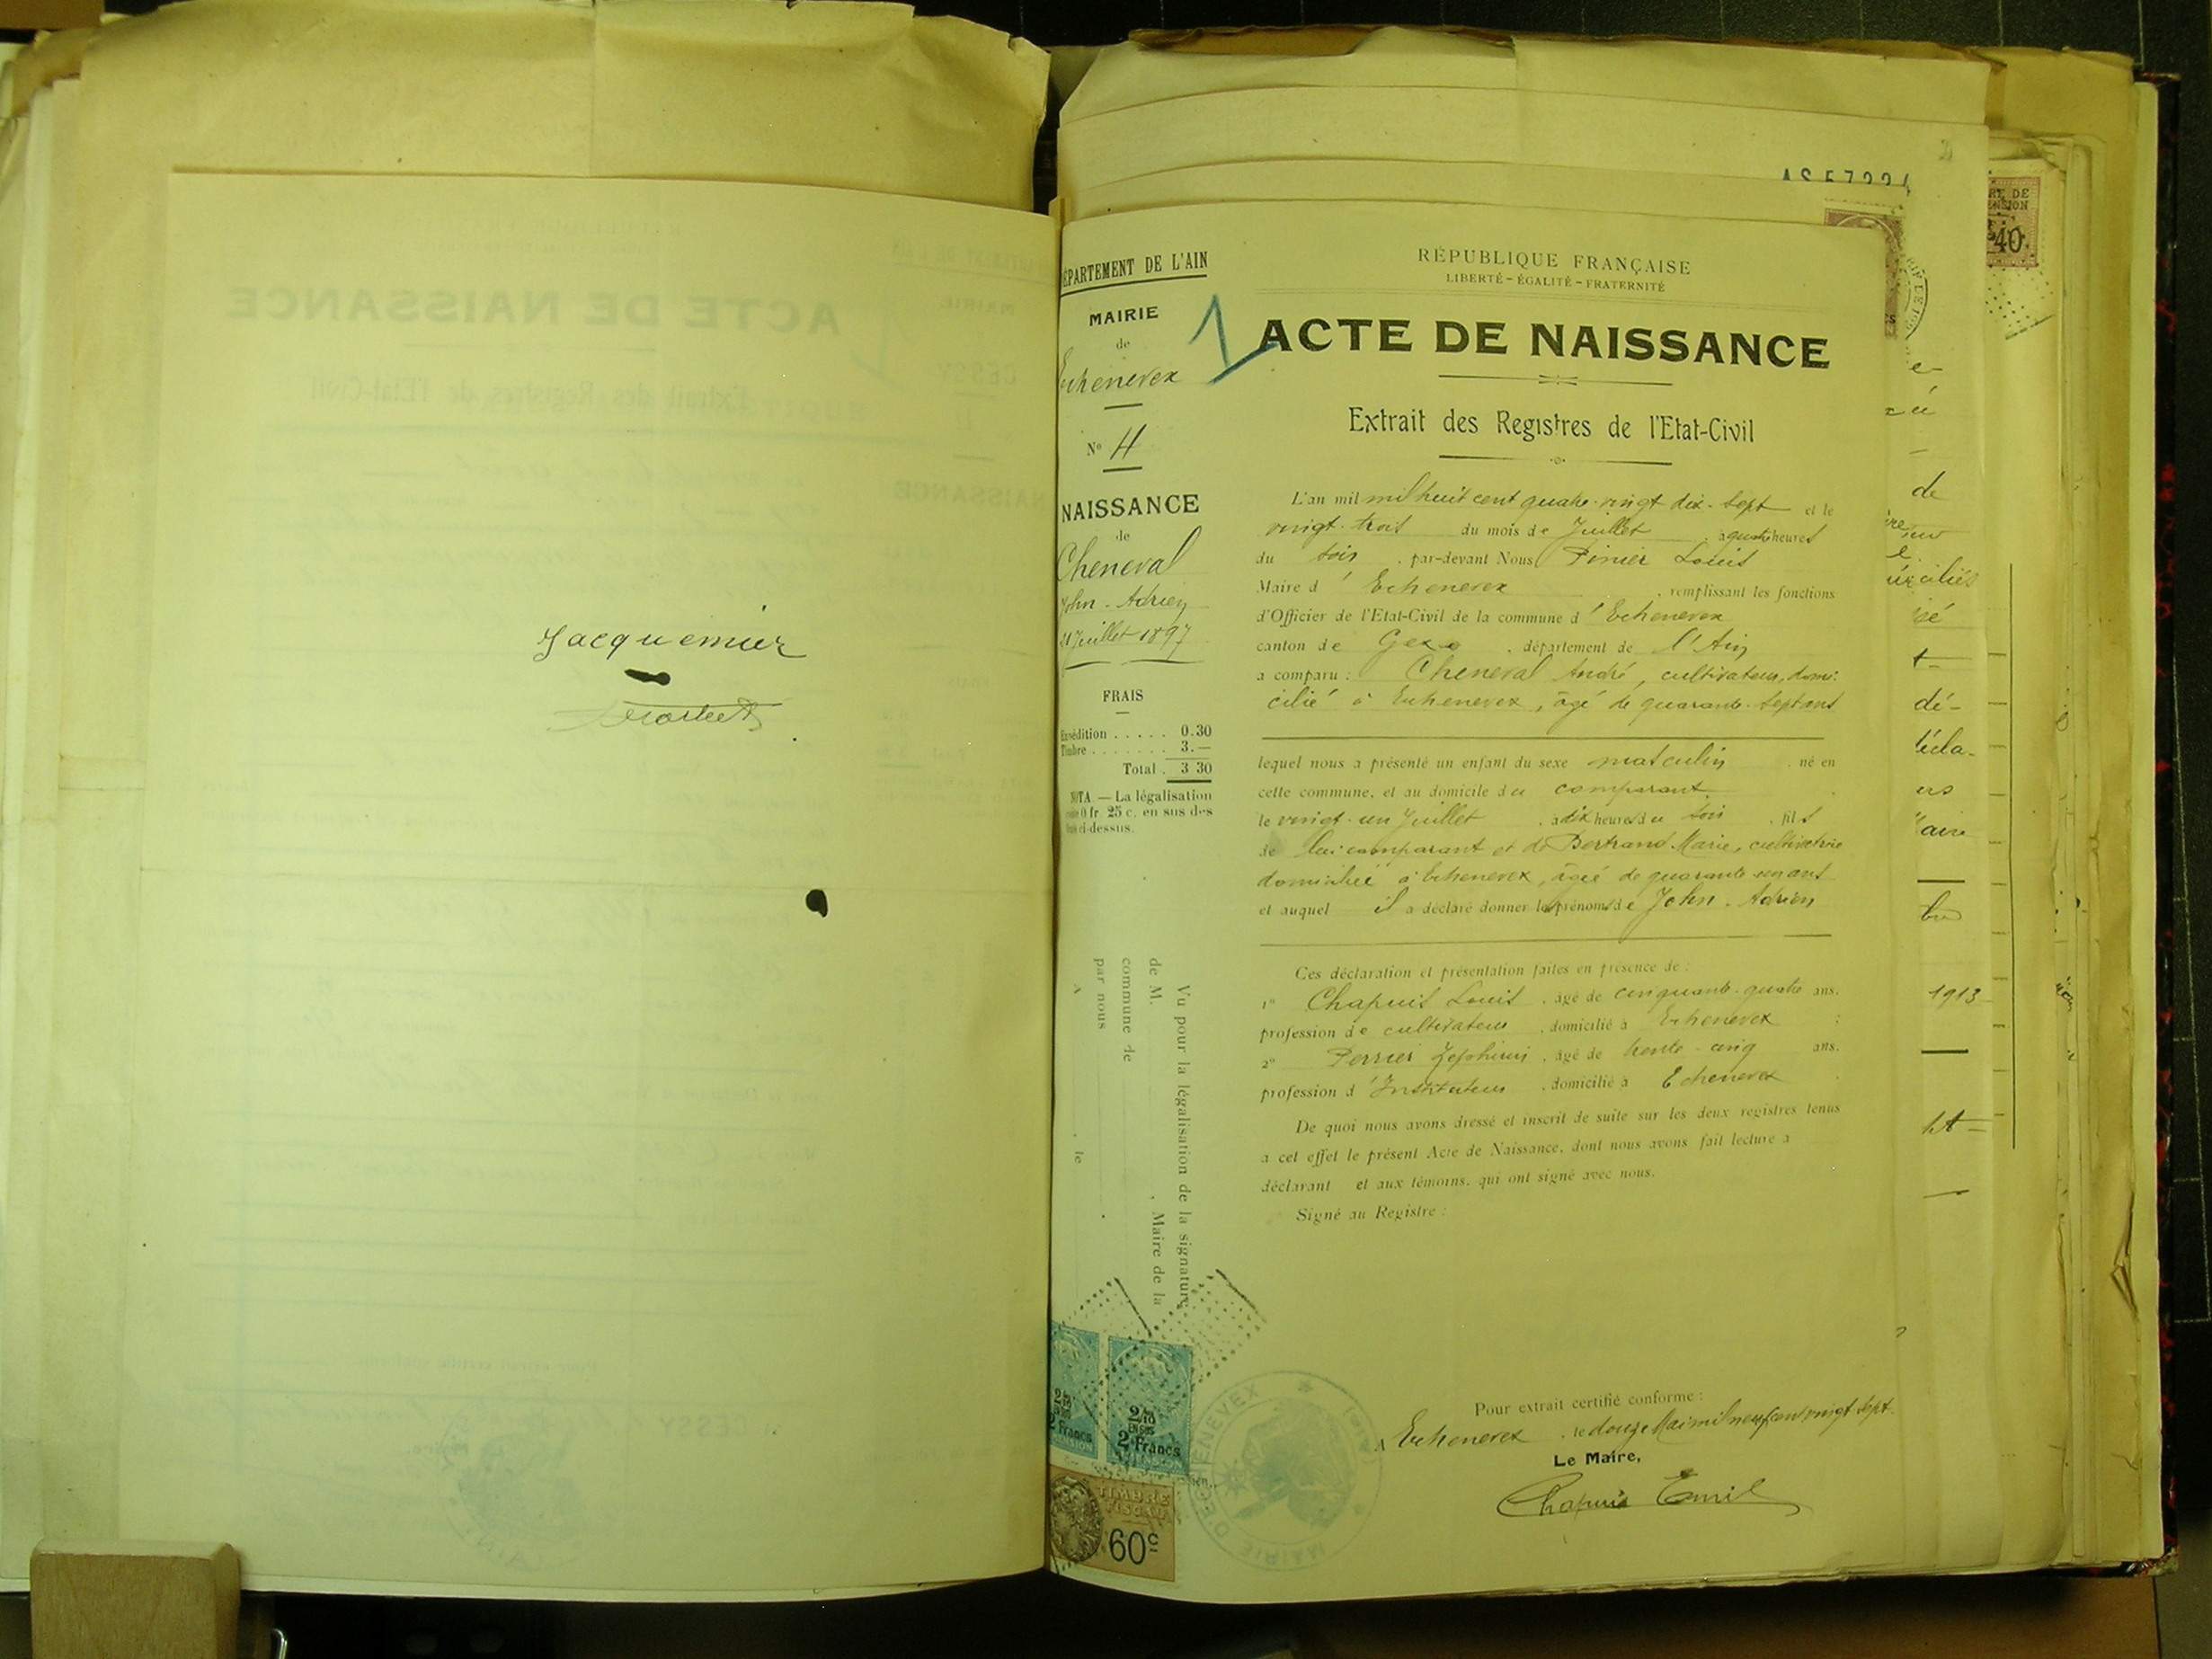 Jacquemier
AS 57224
DÉPARTEMENT DE L'AIN
MAIRIE
de
Echenevex
N° 4
NAISSANCE
de
Cheneval
John - Adrien
21 Juillet 1897
FRAIS
Expédition ..... 0.30
Timbre ....... 3.—
Total . 3 30
NOTA. — La légalisation
coûte 0 fr. 25 c. en sus des
frais ci-dessus.
Vu pour la légalisation de la signature
de M. , Maire de la
commune de
par nous
A , le
RÉPUBLIQUE FRANÇAISE
LIBERTÉ - ÉGALITÉ - FRATERNITÉ
1
ACTE DE NAISSANCE
Extrait des Registres de l'Etat-Civil
L'an mil mil huit cent quatre-vingt dix-sept et le
vingt-trois du mois de Juillet , à quatre heures
du soir , par-devant Nous Pinier Louis
Maire d' Echenevex , remplissant les fonctions
d'Officier de l'Etat-Civil de la commune d' Echenevex
canton de Gex , département de l'Ain
a comparu : Cheneval André, cultivateur, domi-
cilié à Echenevex, âgé de quarante-sept ans
lequel nous a présenté un enfant du sexe masculin , né en
cette commune, et au domicile du comparant
le vingt-un Juillet , à dix heures du soir , fils
de lui comparant et de Bertrand Marie, cultivatrice
domiciliée à Echenevex, âgée de quarante-un ans
et auquel il a déclaré donner les prénoms de John - Adrien
Ces déclaration et présentation faites en présence de :
1° Chapuis Louis , âgé de cinquante-quatre ans,
profession de cultivateur , domicilié à Echenevex ;
2° Perrier Zéphirin , âgé de trente-cinq ans,
profession d'Instituteur , domicilié à Echenevex .
De quoi nous avons dressé et inscrit de suite sur les deux registres tenus
à cet effet le présent Acte de Naissance, dont nous avons fait lecture a
déclarant et aux témoins, qui ont signé avec nous.
Signé au Registre :
Pour extrait certifié conforme :
A Echenevex , le douze Mai mil neuf cent vingt sept.
Le Maire,
Chapuis Emile
MAIRIE D'ECHENEVEX (Ain)
2 Francs
2 Francs
TIMBRE
FISCAL
60c
40
1913